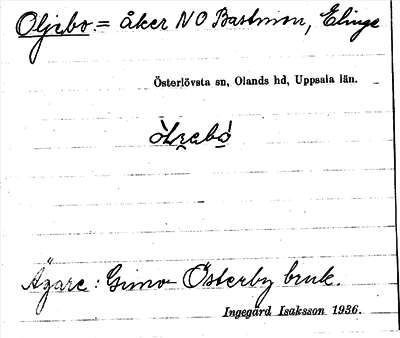 Oljebo = åker NO Bastmon, Elinge
Österlövsta sn, Olands hd, Uppsala län.
Ägare: Gimo Österby bruk.
Ingegärd Isaksson 1936.